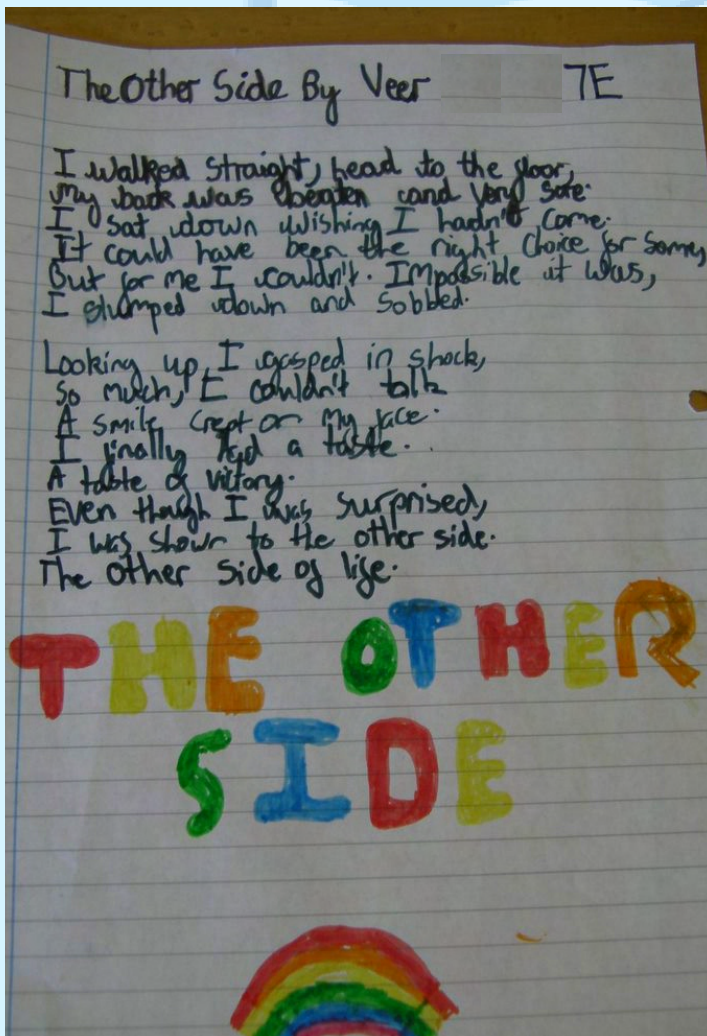 The Other Side By Veer 7E
I walked straight, head to the floor,
My back was beaten and very sore.
I sat down wishing I hadn't come.
It could have been the right choice for some,
But for me I couldn't. Impossible it was,
I slumped down and sobbed.
Looking up, I gasped in shock,
So much, I couldn't talk
A smile crept on my face.
I finally had a taste.
A taste of victory.
Even though I was surprised,
I was shown to the other side.
The other side of life.
THE OTHER
SIDE